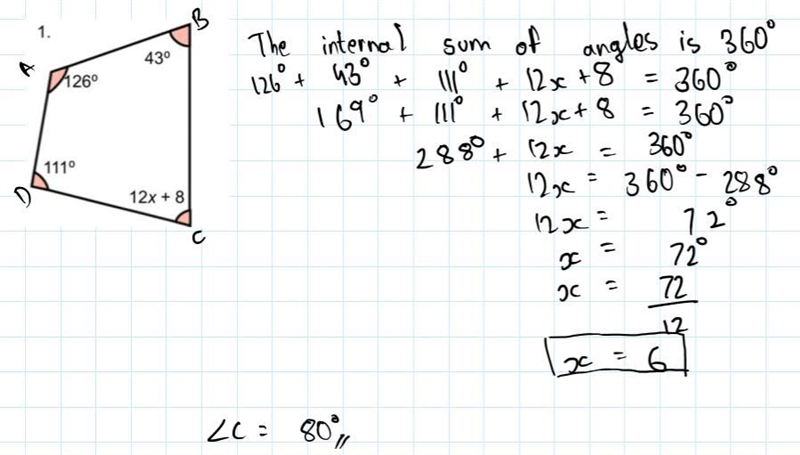 1.
A
B
43º
126º
111º
D
12x + 8
C
The internal sum of angles is 360°
126° + 43° + 111° + 12x + 8 = 360°
169° + 111° + 12x + 8 = 360°
288° + 12x = 360°
12x = 360° - 288°
12x = 72°
x = 72°
x = 72
12
x = 6
∠C = 80°